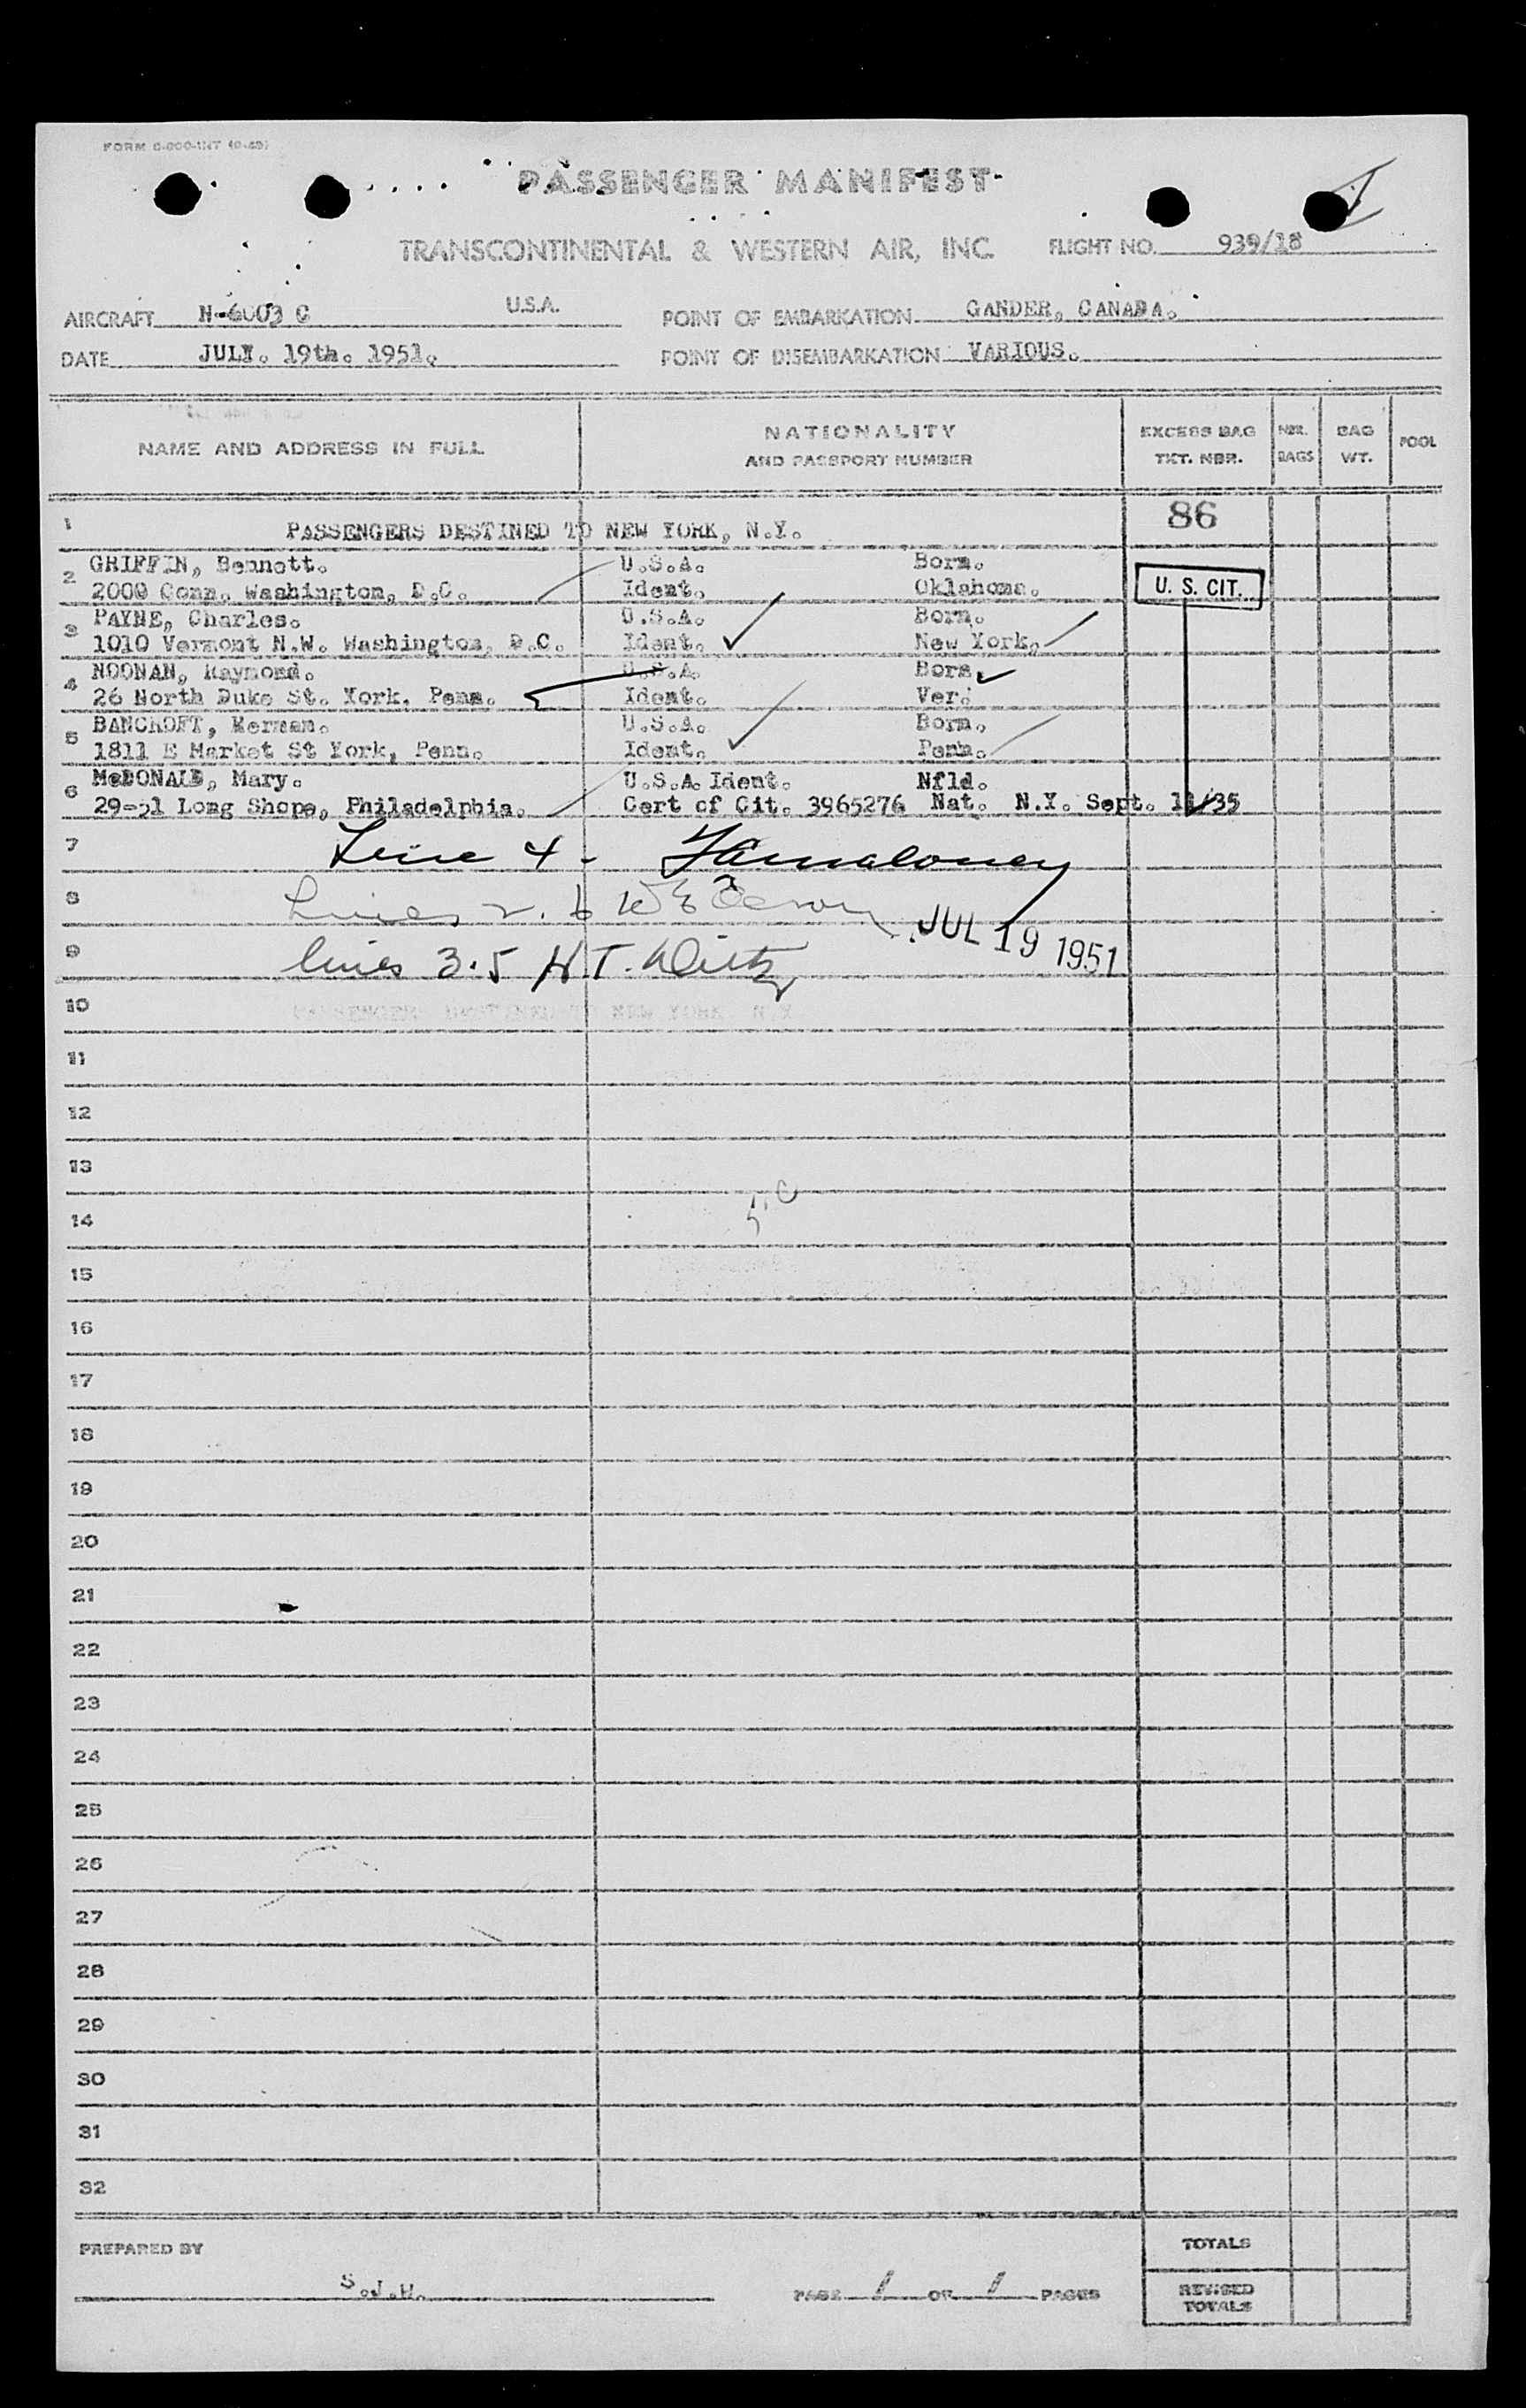 PASSENGER MANIFEST
TRANSCONTINENTAL & WESTERN AIR, INC. FLIGHT NO. 939/18
AIRCRAFT N-6003 C U.S.A. POINT OF EMBARKATION GANDER, CANADA.
DATE JULY. 19th. 1951. POINT OF DISEMBARKATION VARIOUS.
NAME AND ADDRESS IN FULL NATIONALITY AND PASSPORT NUMBER EXCESS BAG TKT. NBR. NBR. BAGS BAG WT. POOL
1 PASSENGERS DESTINED TO NEW YORK, N.Y. 86
2 GRIFFIN, Bennett. U.S.A. Born.
2000 Conn, Washington, D.C. Ident. Oklahoma. U. S. CIT.
3 PAYNE, Charles. U.S.A. Born.
1010 Vermont N.W. Washington, D.C. Ident. New York.
4 NOONAN, Raymond. U.S.A. Born.
26 North Duke St. York, Penn. Ident. Ver.
5 BANCROFT, Kerman. U.S.A. Born.
1811 E Market St York, Penn. Ident. Penn.
6 McDONALD, Mary. U.S.A. Ident. Nfld.
29-51 Long Shope, Philadelphia. Cert of Cit. 3965276 Nat. N.Y. Sept. 35
7 Line 4 -
8 Lines 2. 6
JUL 19 1951
9 lines 3.5 H.T.
10 PASSENGERS DESTINED TO NEW YORK N.Y.
11
12
13
14
15
16
17
18
19
20
21
22
23
24
25
26
27
28
29
30
31
32
PREPARED BY S.J.H. PAGE 1 OF 1 PAGES
TOTALS
REVISED TOTALS